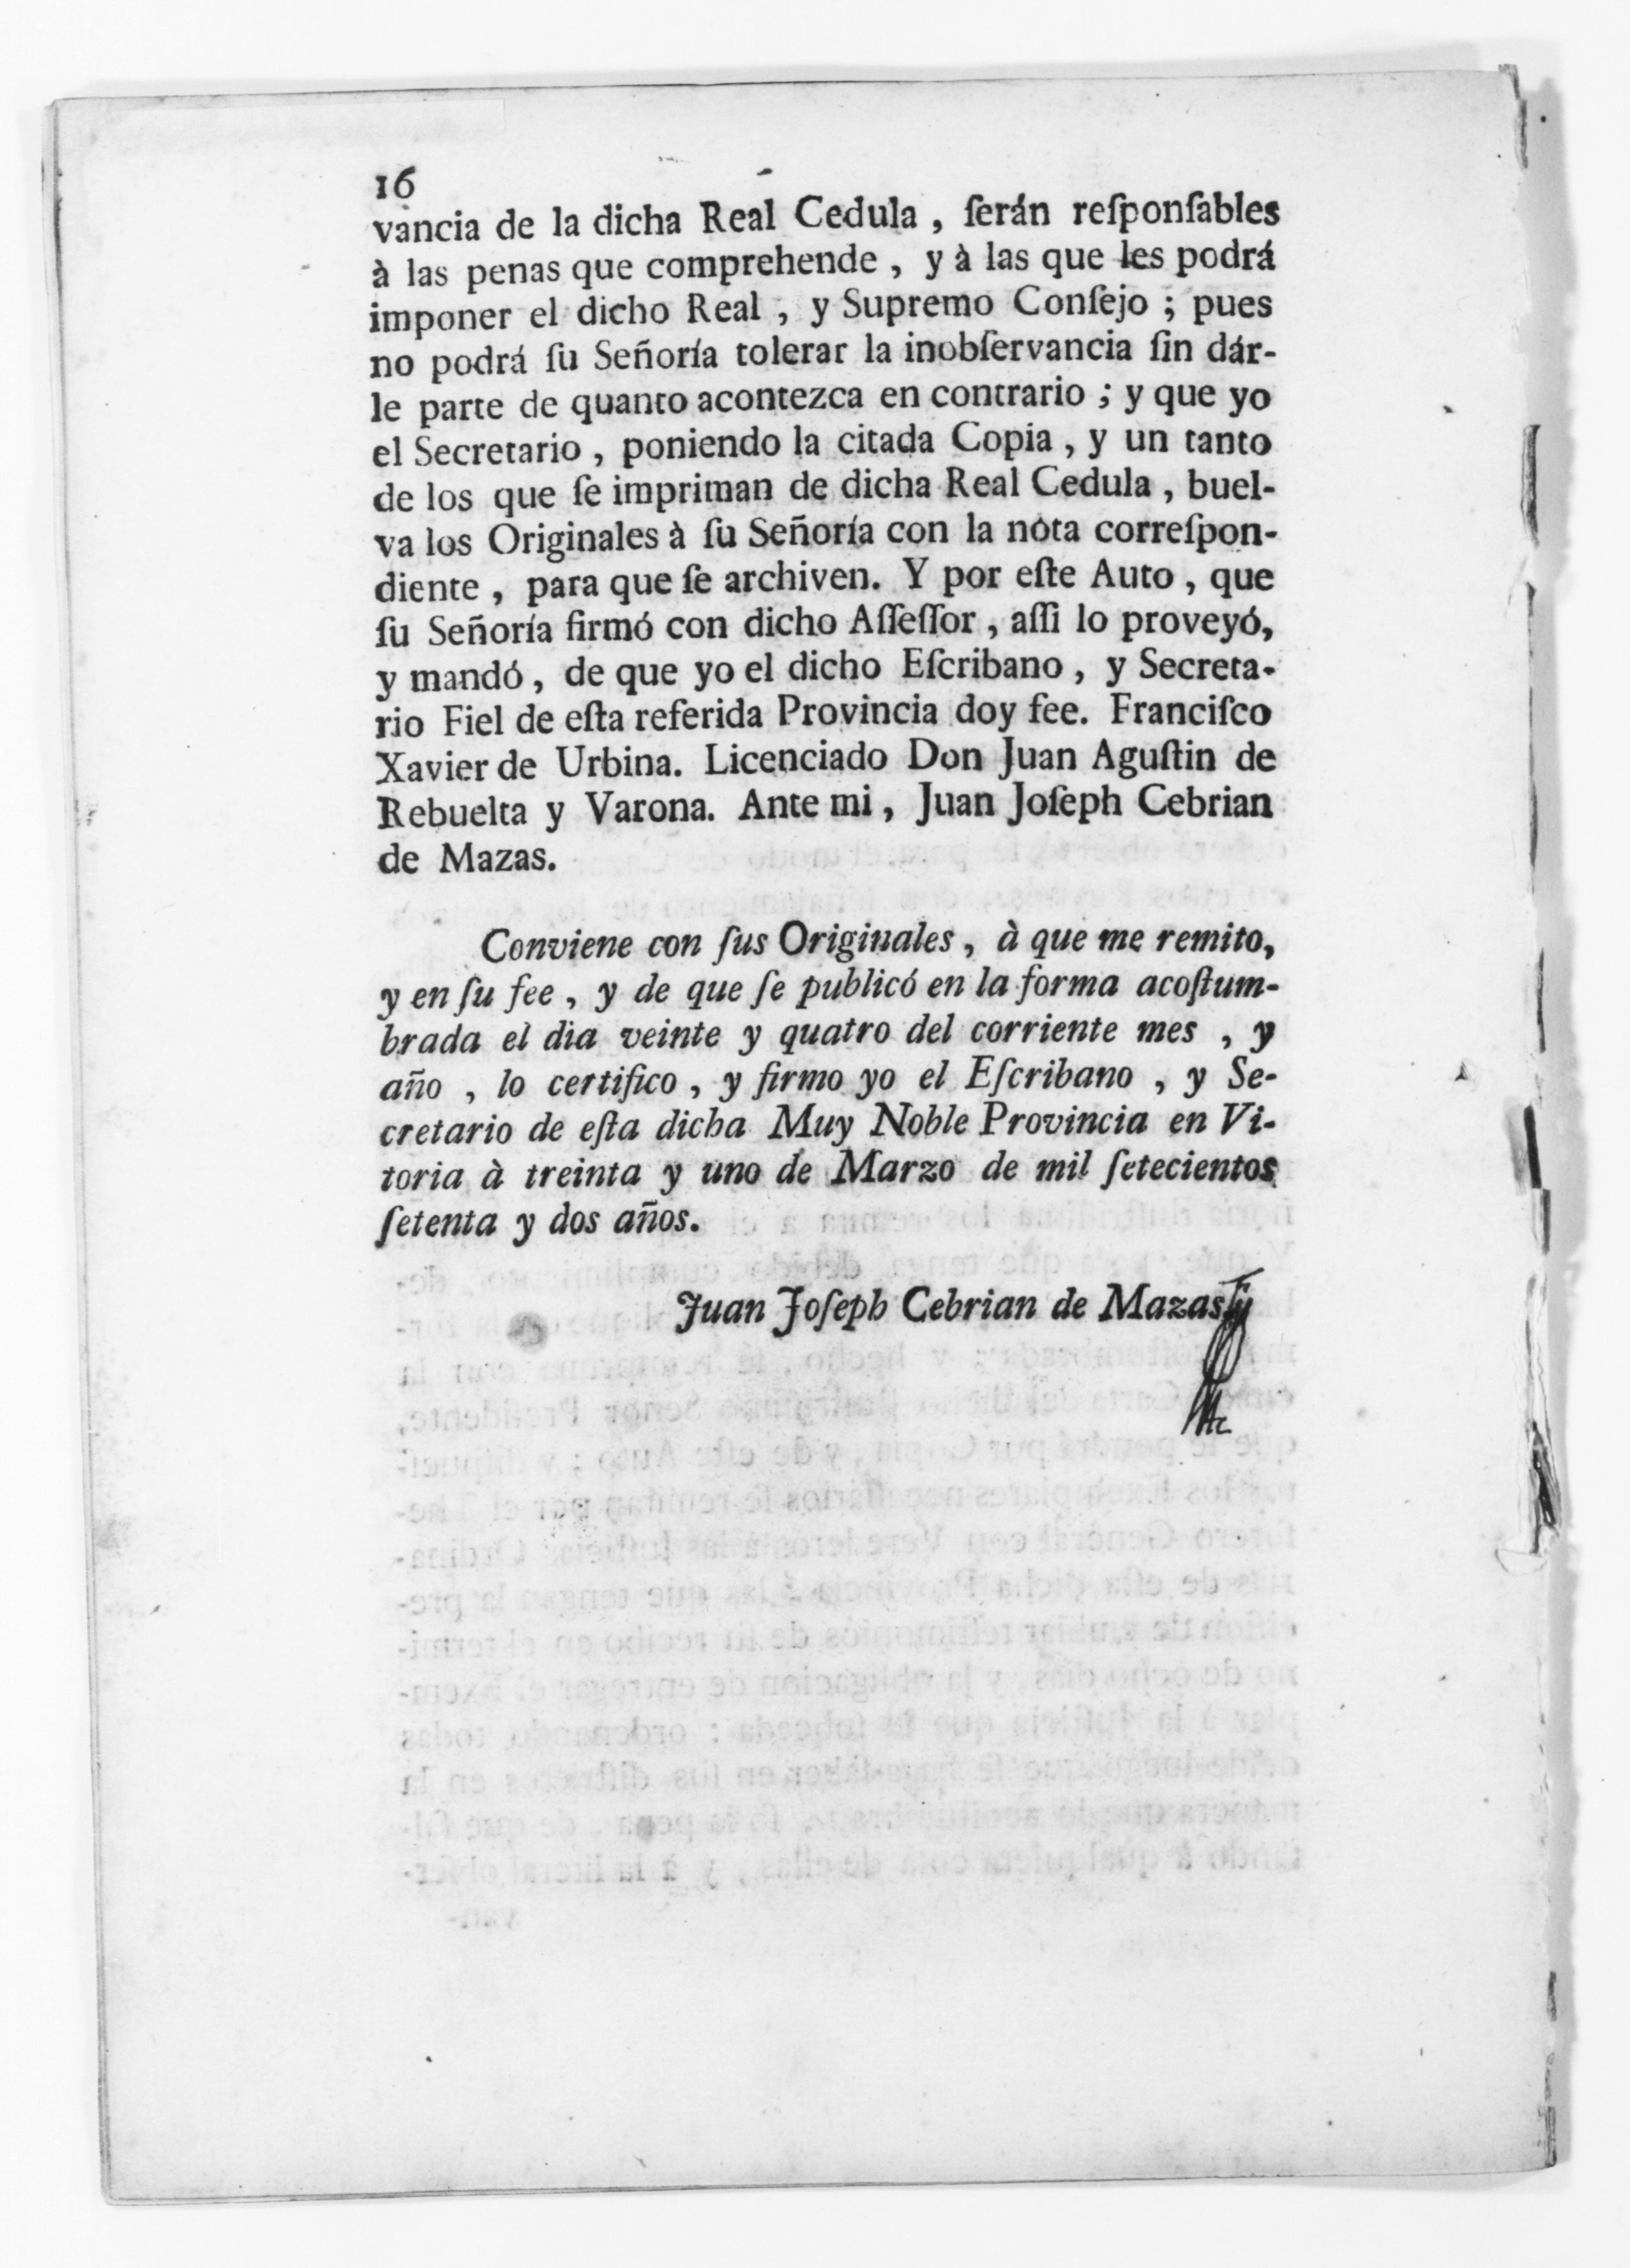 16
vancia de la dicha Real Cedula , ſerán reſponſables
à las penas que comprehende , y à las que les podrá
imponer el dicho Real , y Supremo Conſejo ; pues
no podrá ſu Señoría tolerar la inobſervancia ſin dár-
le parte de quanto acontezca en contrario ; y que yo
el Secretario , poniendo la citada Copia , y un tanto
de los que ſe impriman de dicha Real Cedula , buel-
va los Originales à ſu Señoría con la nota correſpon-
diente , para que ſe archiven. Y por eſte Auto , que
ſu Señoría firmó con dicho Aſſeſſor , aſſi lo proveyó,
y mandó , de que yo el dicho Eſcribano , y Secreta-
rio Fiel de eſta referida Provincia doy fee. Franciſco
Xavier de Urbina. Licenciado Don Juan Aguſtin de
Rebuelta y Varona. Ante mi , Juan Joſeph Cebrian
de Mazas.
Conviene con ſus Originales , à que me remito,
y en ſu fee , y de que ſe publicó en la forma acoſtum-
brada el dia veinte y quatro del corriente mes , y
año , lo certifico , y firmo yo el Eſcribano , y Se-
cretario de eſta dicha Muy Noble Provincia en Vi-
toria à treinta y uno de Marzo de mil ſetecientos
ſetenta y dos años.
Juan Joſeph Cebrian de Mazas